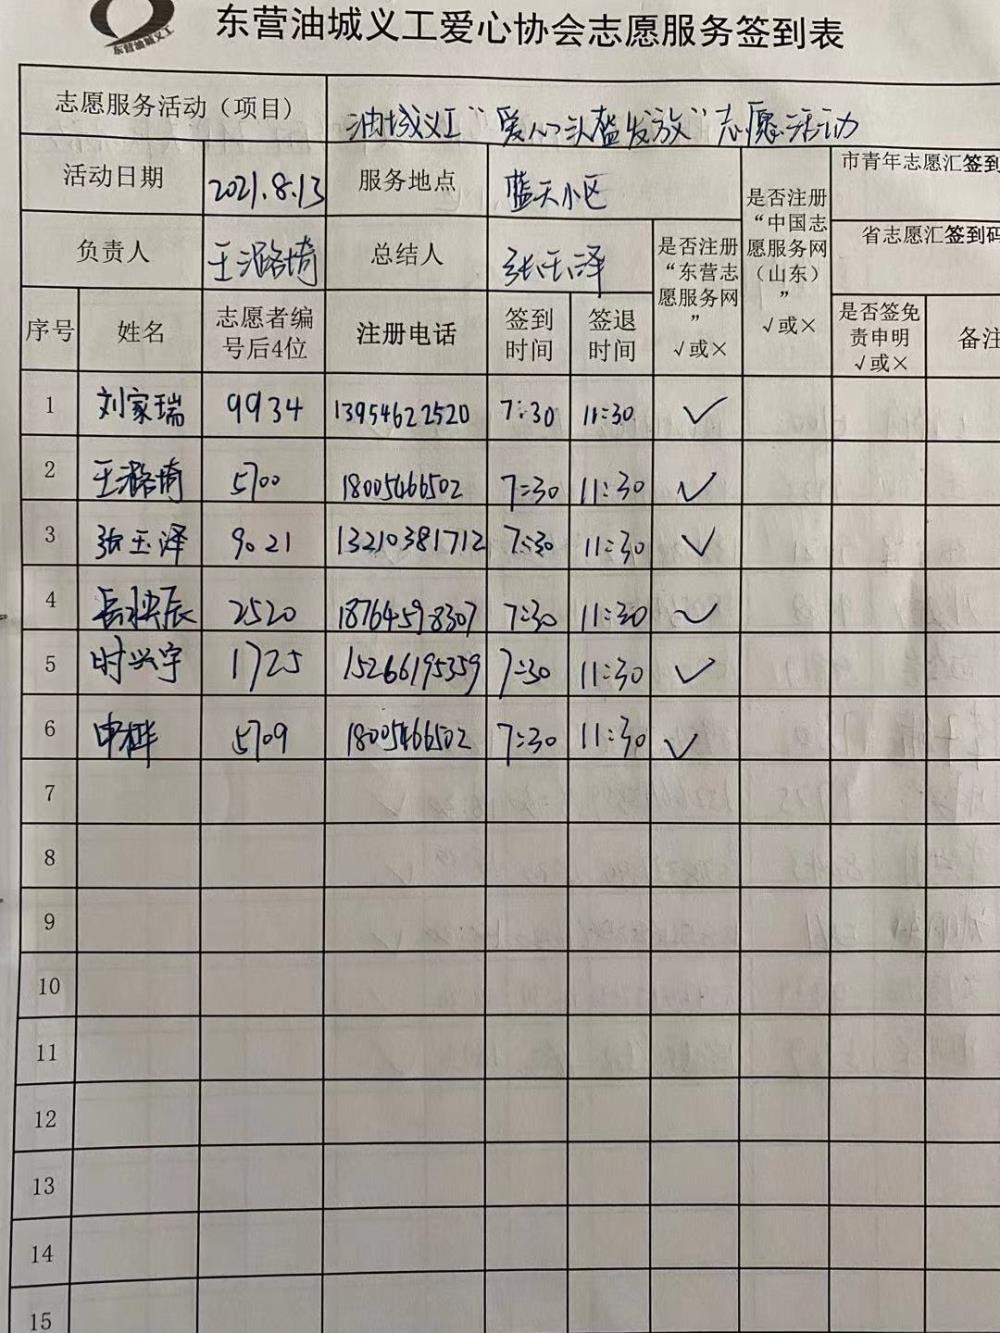 东营油城义工
东营油城义工爱心协会志愿服务签到表
志愿服务活动（项目） 油城义工“爱心头盔发放”志愿活动
活动日期 2021.8.13 服务地点 蓝天小区
负责人 王潞埼 总结人 张玉泽
是否注册“东营志愿服务网” √或×
是否注册“中国志愿服务网（山东）” √或×
市青年志愿汇签到
省志愿汇签到码
序号 姓名 志愿者编号后4位 注册电话 签到时间 签退时间 是否签免责申明 √或× 备注
1 刘家瑞 9934 13954622520 7:30 11:30 √
2 王潞埼 5700 18005466502 7:30 11:30 √
3 张玉泽 9021 13210381712 7:30 11:30 √
4 辰 2520 18764598307 7:30 11:30 √
5 时兴宇 1725 15266195359 7:30 11:30 √
6 申桦 5709 18005466502 7:30 11:30 √
7
8
9
10
11
12
13
14
15